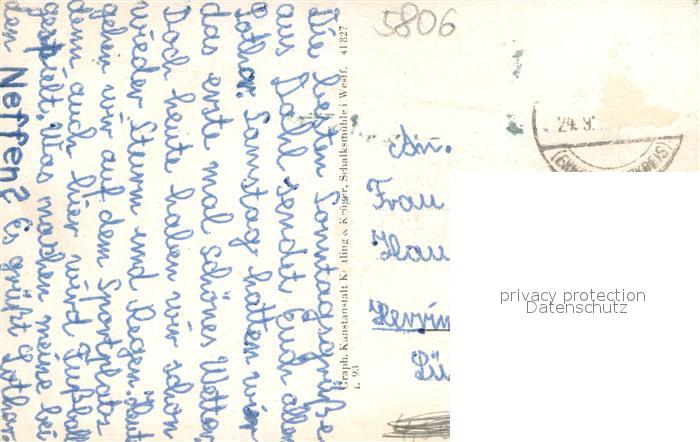 Die letzten Sonntagsgrüße
aus Dahl sendet Euch allen
Lothar. Samstag hatten wir
das erste mal schönes Wetter,
Doch heute haben wir schon
wieder Sturm und Regen. Heut
gehen wir auf dem Sportplatz,
denn auch hier wird Fußball
gespielt. Was machen meine bei
den Neffen? Es grüßt Lothar
Graph. Kunstanstalt Kettling & Krüger, Schalksmühle i. Westf. 41827
L 93
5806
24.9.
KREIS)
An.
Frau
Hau
Lü
privacy protection
Datenschutz